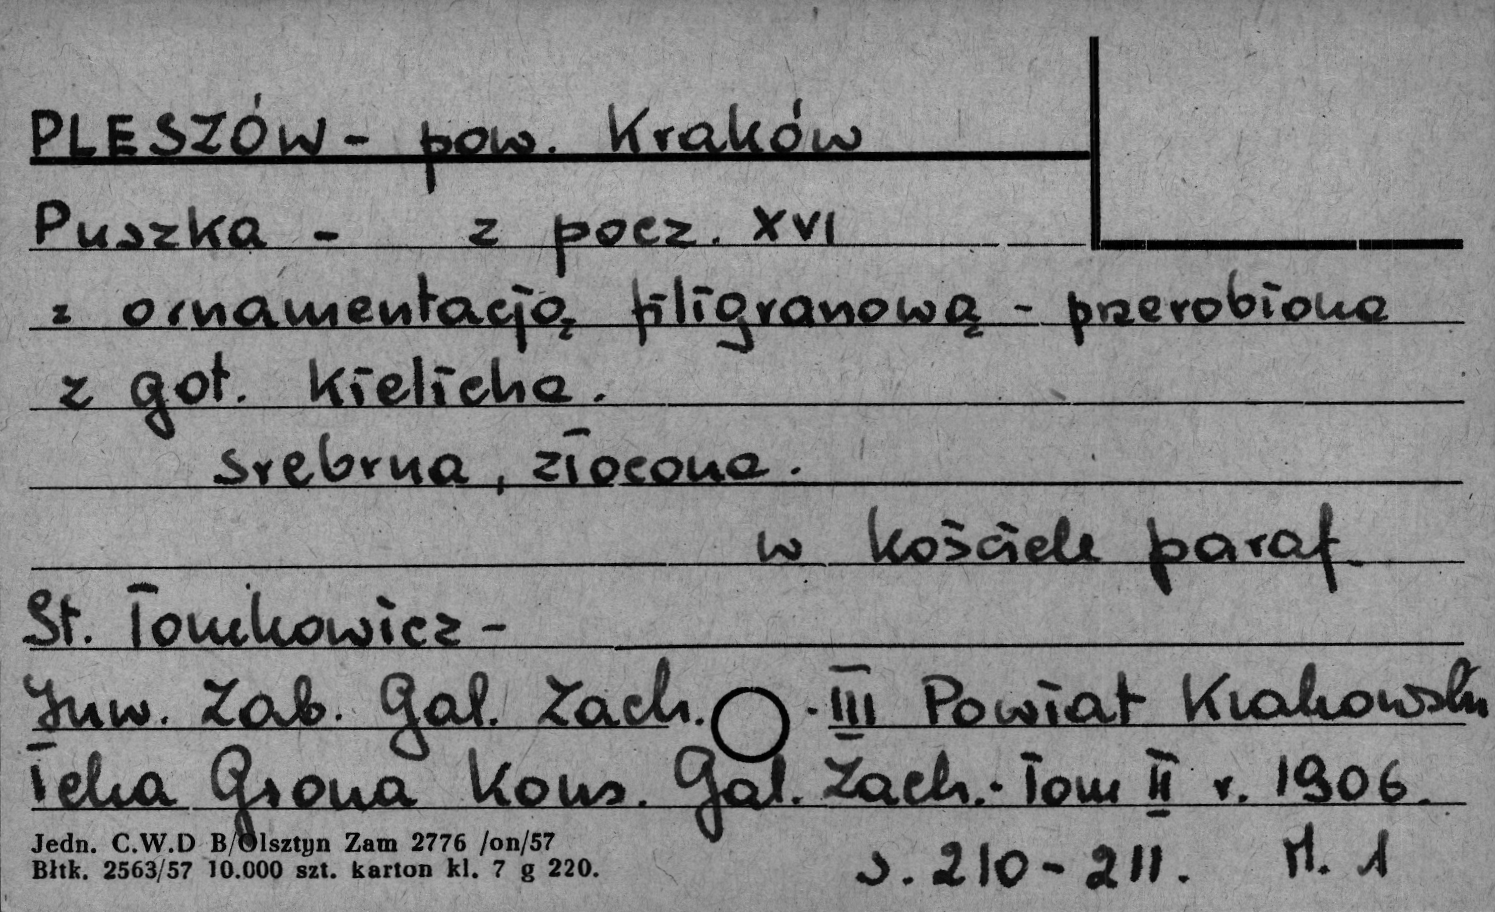 PLESZÓW - pow. Kraków
Puszka - z pocz. XVI
z ornamentacją filigranową - przerobiona
z got. kielicha.
srebrna, złocona.
w kościele paraf.
St. Tomkowicz -
Inw. Zab. Gal. Zach. · III Powiat Krakowski
Teka Grona Kons. Gal. Zach. · Tom II r. 1906.
Jedn. C.W.D B/Olsztyn Zam 2776 /on/57
Błtk. 2563/57 10.000 szt. karton kl. 7 g 220.
s. 210 - 211.